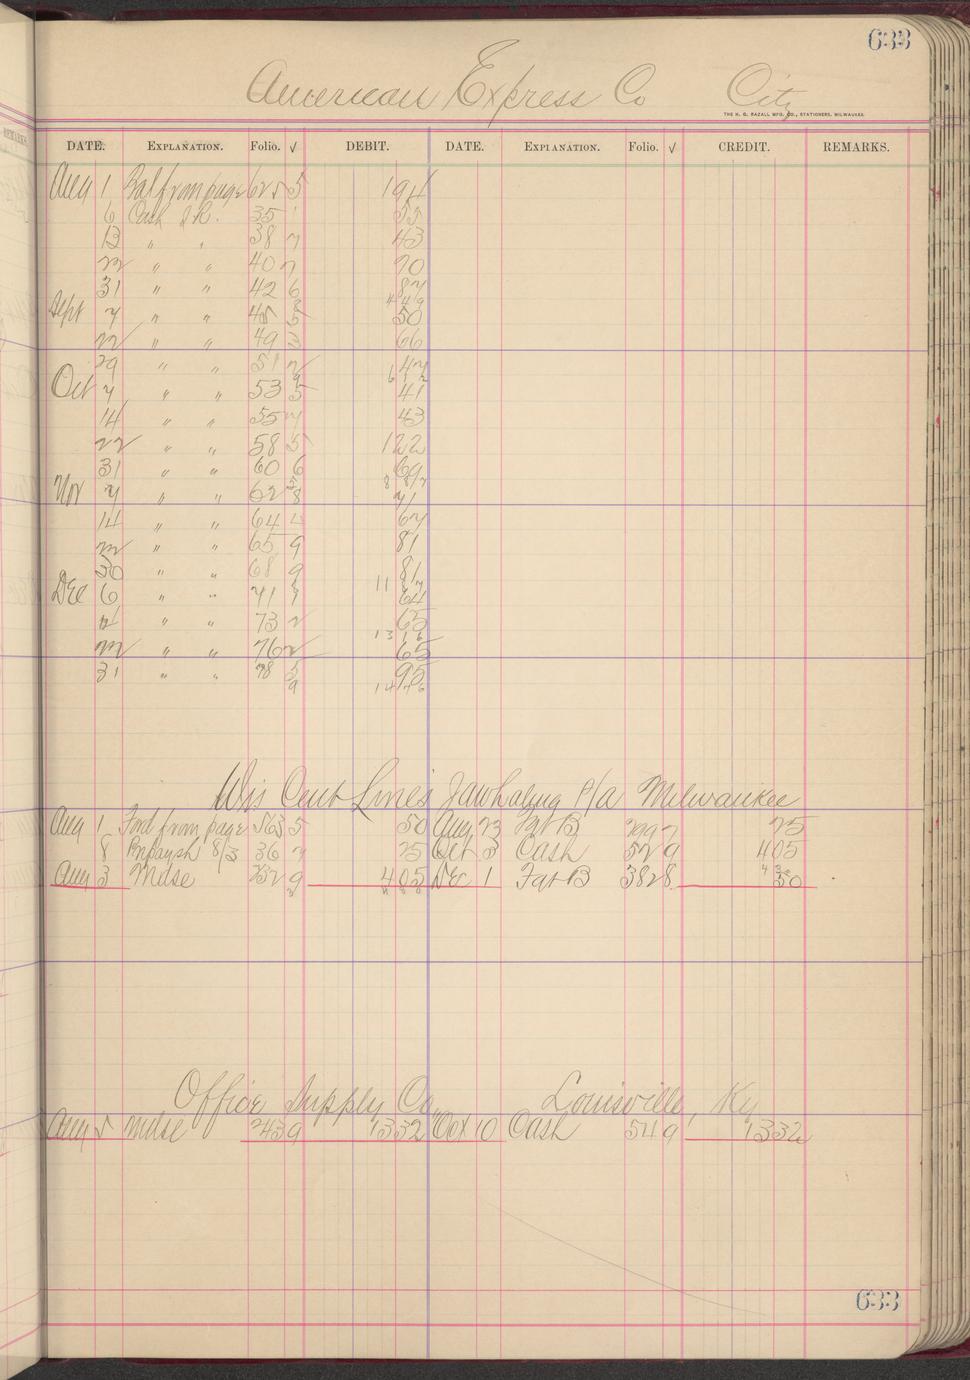 633
American Express Co City
THE H. G. RAZALL MFG. CO., STATIONERS, MILWAUKEE
DATE. EXPLANATION. Folio. √ DEBIT. DATE. EXPLANATION. Folio. √ CREDIT. REMARKS.
Aug 1 Bal from page 625 5 194
6 Cash 35 55
13 " " 38 7 43
22 " " 40 7 70
31 " " 42 6 87
449
Sept 7 " " 45 5 50
22 " " 49 3 66
29 " " 51 2 47
612
Oct 7 " " 53 5 41
14 " " 55 7 43
22 " " 58 5 122
31 " " 60 6 69
887
Nov 7 " " 62 8 71
14 " " 64 67
22 " " 65 9 81
30 " " 68 9 81
1187
Dec 6 " " 71 64
" " 73 2 65
1316
22 " " 76 2 65
31 " " 78 5 95
9 1476
Wis Cent Lines P/a Milwaukee
Aug 1 Ford from page 563 5 50 Aug 23 Fgt B 299 7 25
8 8/3 36 7 25 Oct 3 Cash 52 9 405
430
Aug 3 Mdse 232 9 405 Dec 1 Fgt B 382 8 50
Office Supply Co Louisville, Ky
Aug 5 Mdse 243 9 1332 Oct 10 Cash 54 9 1332
633